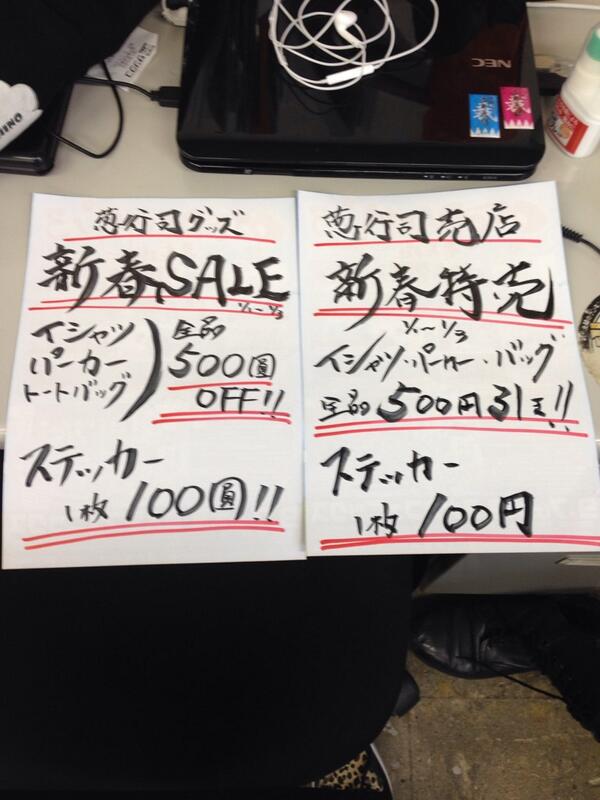 葱行司グッズ
新春SALE
1/1~1/3
Tシャツ
パーカー
トートバッグ
全品
500圓
OFF!!
ステッカー
1枚 100圓!!
葱行司売店
新春特売
1/1~1/3
Tシャツ・パーカー・バッグ
全品 500円引き!!
ステッカー
1枚 100円
NEC